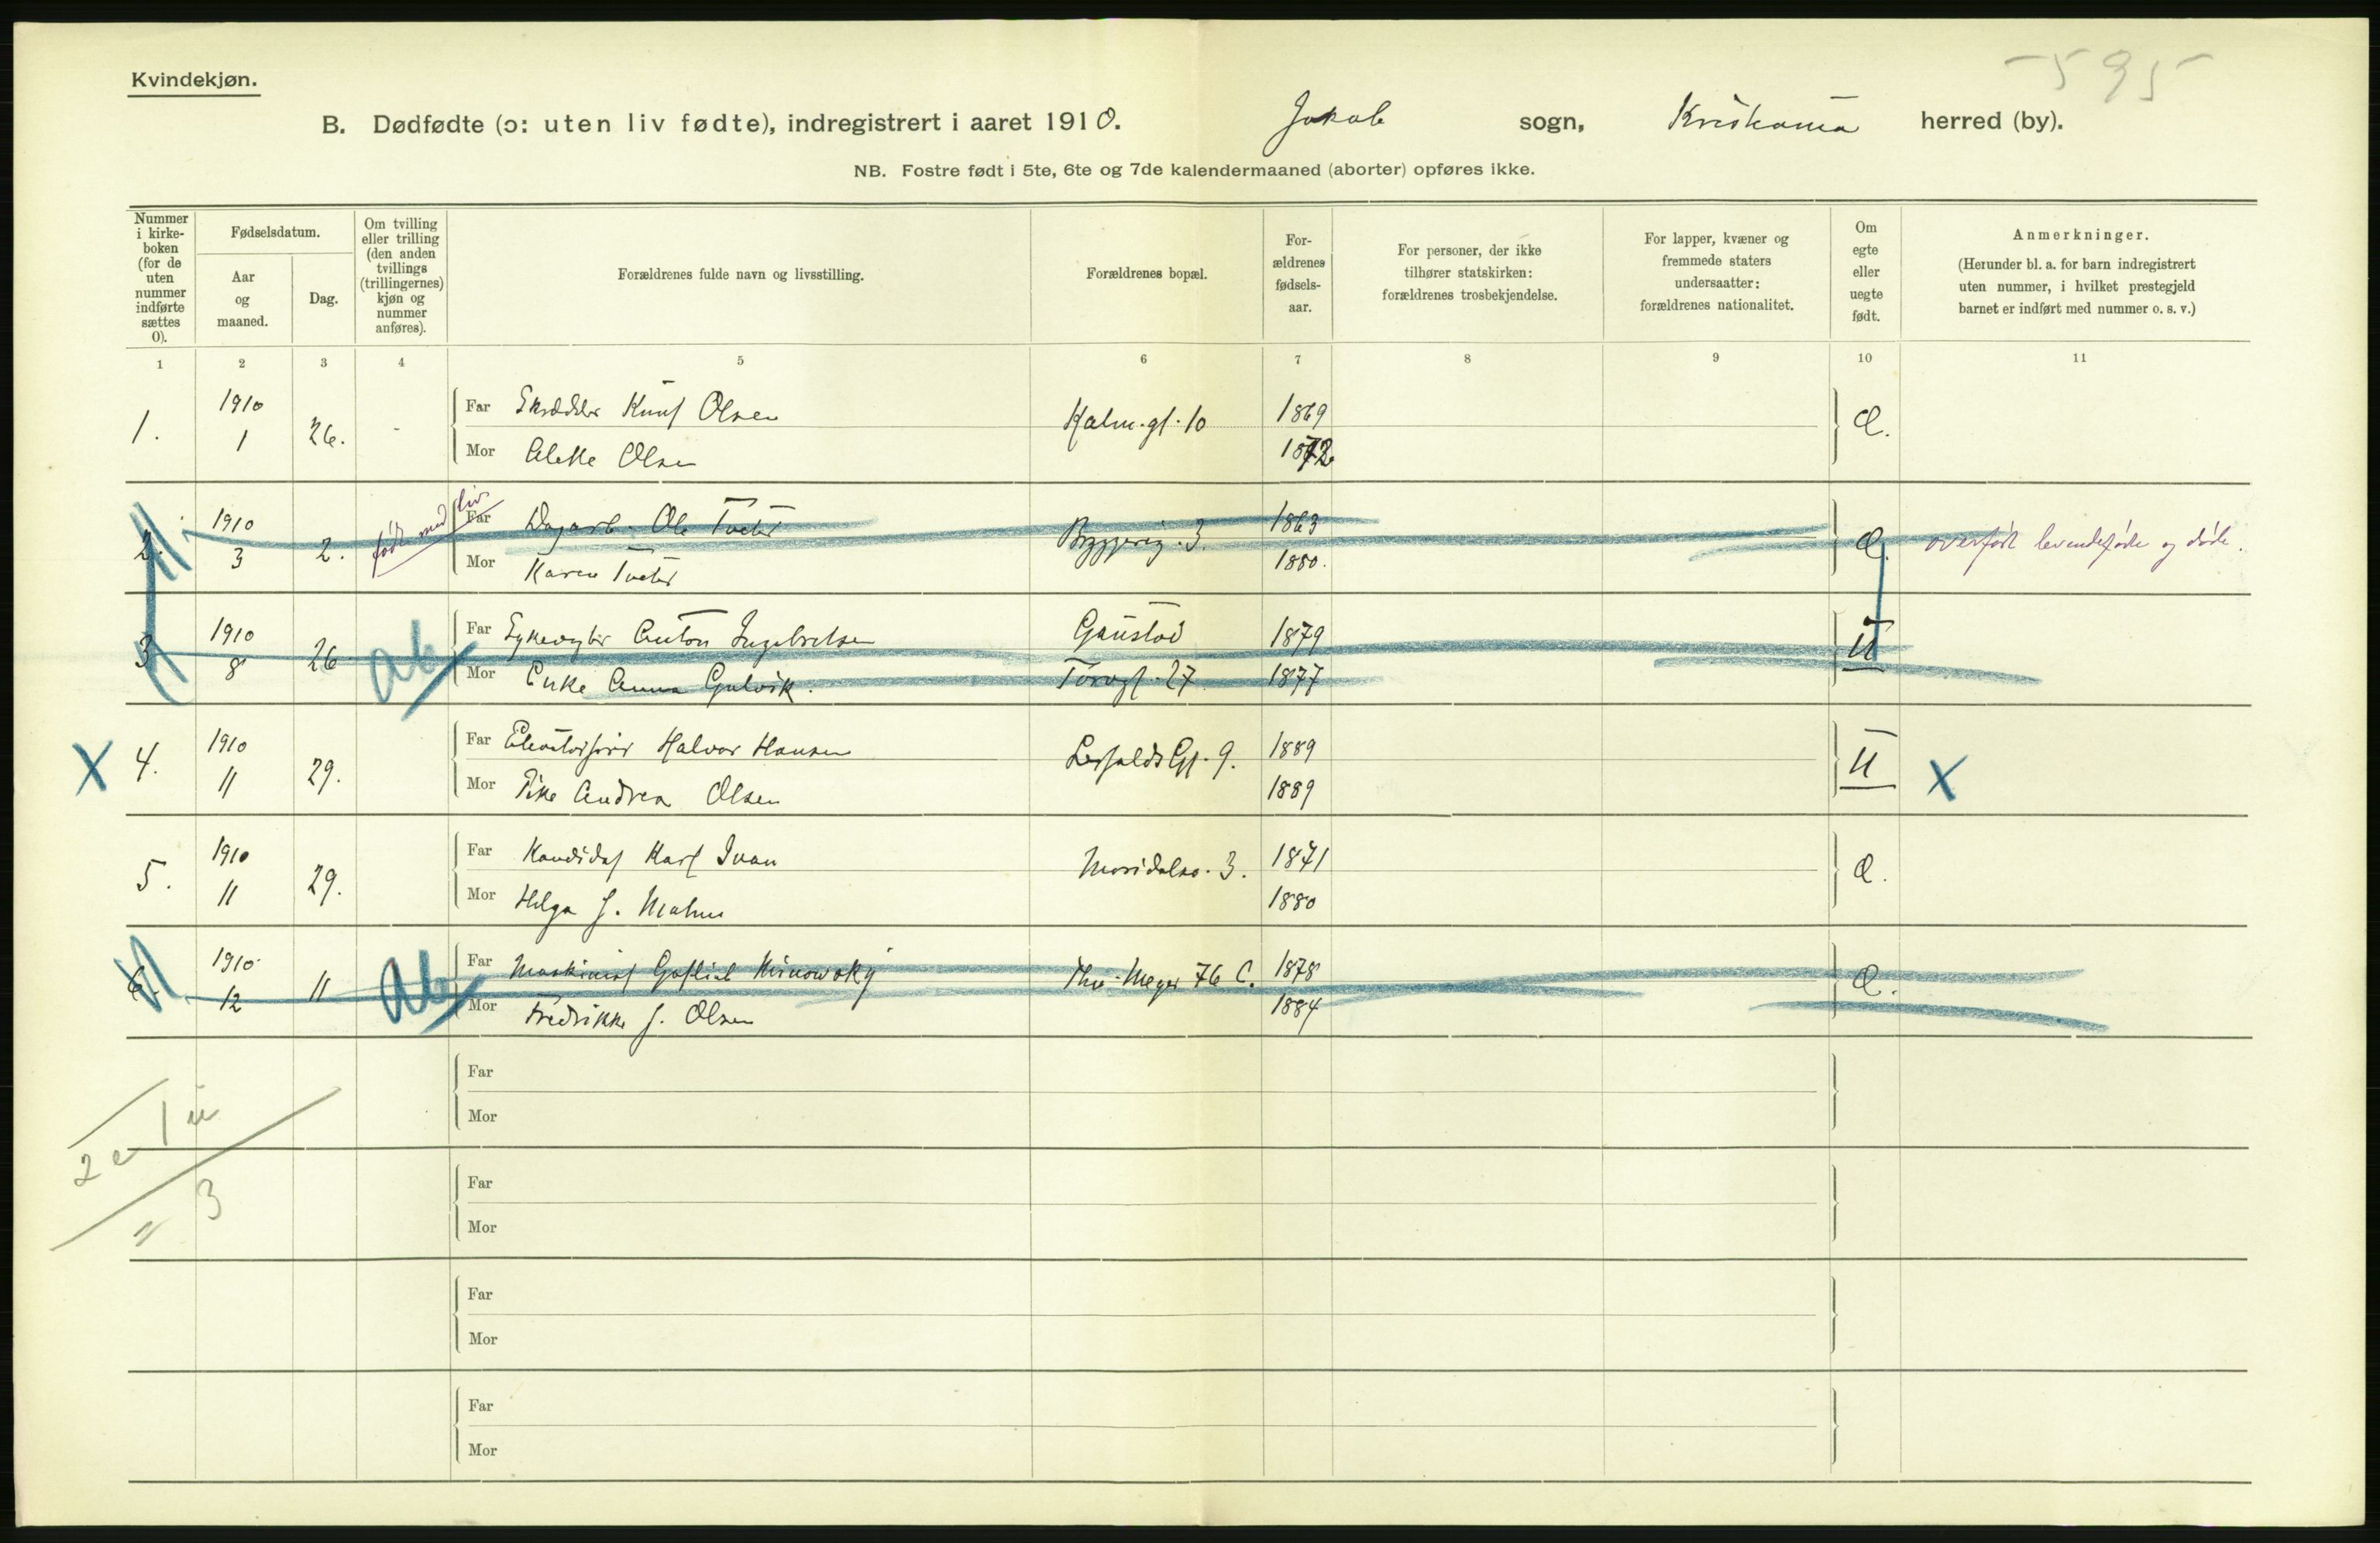 595
Kvindekjøn.
B. Dødfødte (ɔ: uten liv fødte), indregistrert i aaret 1910. Jakob sogn, Kristiania herred (by).
NB. Fostre født i 5te, 6te og 7de kalendermaaned (aborter) opføres ikke.
Nummer i kirkeboken (for de uten nummer indførte sættes 0).
Fødselsdatum.
Aar og maaned.
Dag.
Om tvilling eller trilling (den anden tvillings (trillingernes) kjøn og nummer anføres).
Forældrenes fulde navn og livsstilling.
Forældrenes bopæl.
For-ældrenes fødsels-aar.
For personer, der ikke tilhører statskirken: forældrenes trosbekjendelse.
For lapper, kvæner og fremmede staters undersaatter: forældrenes nationalitet.
Om egte eller uegte født.
Anmerkninger.
(Herunder bl. a. for barn indregistrert uten nummer, i hvilket prestegjeld barnet er indført med nummer o. s. v.)
1 2 3 4 5 6 7 8 9 10 11
1. 1910 1 26. -
Far Skrædder Knut Olsen Holm.gt. 10 1869 E.
Mor Olsen 1872
2. 1910 3 2. født med liv
Far Dagarb. Ole Tveter Bryggerig. 3. 1863 E. overført levendefødte og døde.
Mor Karen Tveter 1880.
3 1910 8 26 Ab
Far Sykevogter Anton Ingebretsen Gaustad 1879 U
Mor Enke Anna Gulvik. Torvgt. 27 1877
X 4. 1910 11 29.
Far Elevatorfører Halvor Hansen 9. 1889 U X
Mor Pike Andrea Olsen 1889
5. 1910 11 29.
Far Kandidat Karl Ivan Maridalsv. 3. 1871 E.
Mor Helga J. Malm 1880
6. 1910 12 11 Ab
Far Maskinist Thv. Meyer 76 C. 1878 E.
Mor Fredrikke J. Olsen 1884
Far
Mor
2 e 1 u
Far
Mor
= 3
Far
Mor
Far
Mor